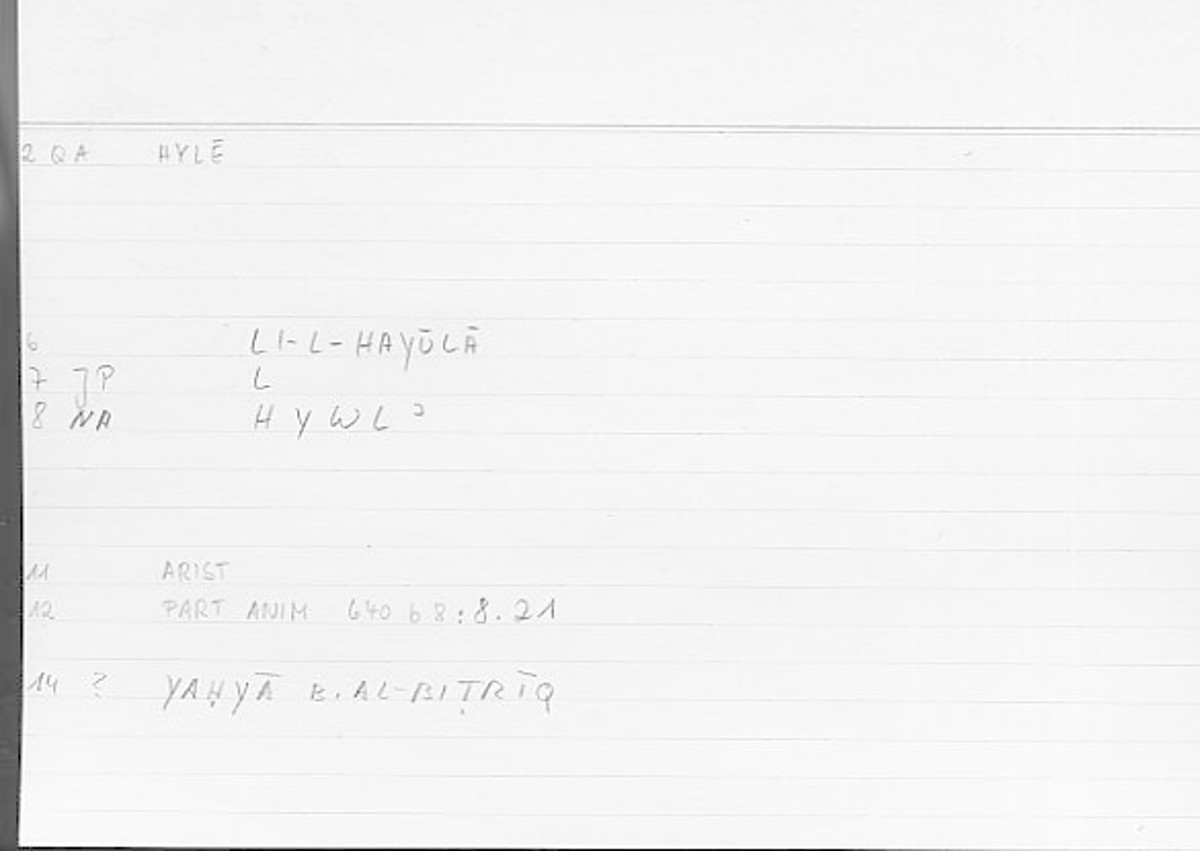 2 QA HYLĒ
6 LI-L-HAYŪLĀ
7 JP L
8 NA H Y W L ʾ
11 ARIST
12 PART ANIM 640 b 8:8.21
14 ? YAḤYĀ B. AL-BIṬRĪQ